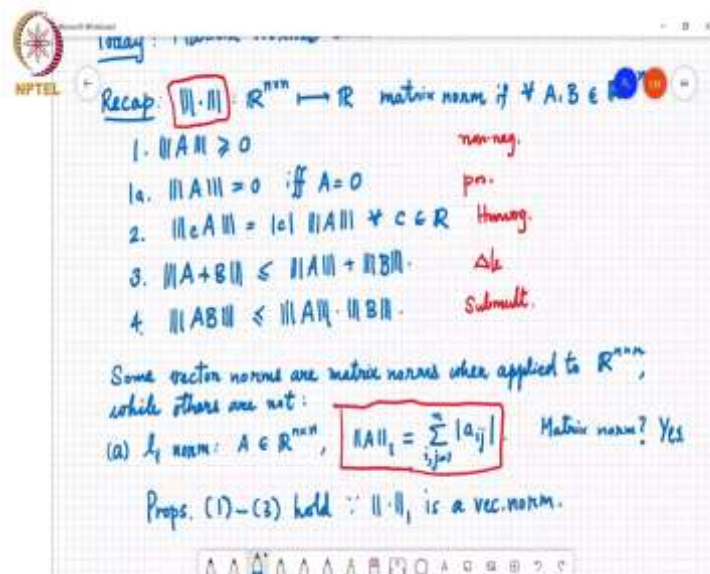 Today: Matrix norms
NPTEL
Recap: |||·||| : ℝⁿˣⁿ ⟼ ℝ matrix norm if ∀ A, B ∈ ℝⁿˣⁿ
1. |||A||| ⩾ 0 non-neg.
1a. |||A||| = 0 iff A = 0 pos.
2. |||cA||| = |c| |||A||| ∀ c ∈ ℝ Homog.
3. |||A+B||| ⩽ |||A||| + |||B|||. Δle
4. |||AB||| ⩽ |||A|||·|||B|||. Submult.
Some vector norms are matrix norms when applied to ℝⁿˣⁿ,
while others are not:
(a) l₁ norm: A ∈ ℝⁿˣⁿ, ||A||₁ = ∑ⁿᵢ,ⱼ₌₁ |aᵢⱼ|. Matrix norm? Yes
Props. (1)-(3) hold ∵ ||·||₁ is a vec. norm.